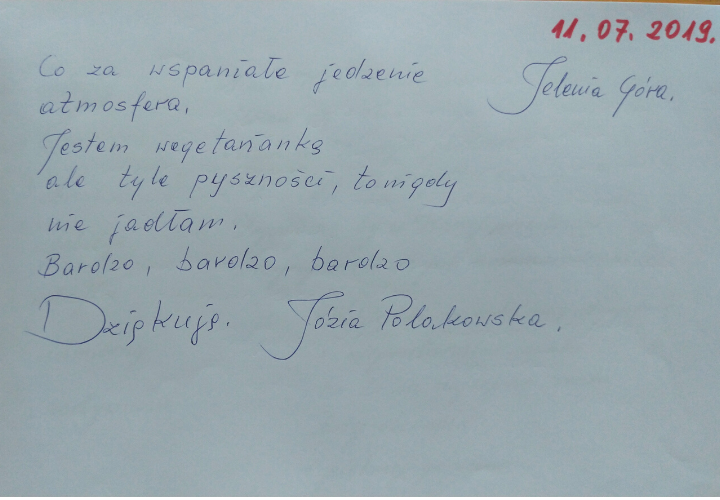 11.07.2019.
Co za wspaniałe jedzenie
Jelenia Góra.
atmosfera.
Jestem wegetarianką
ale tyle pyszności, to nigdy
nie jadłam.
Bardzo, bardzo, bardzo
Dziękuję. Józia Polakowska.